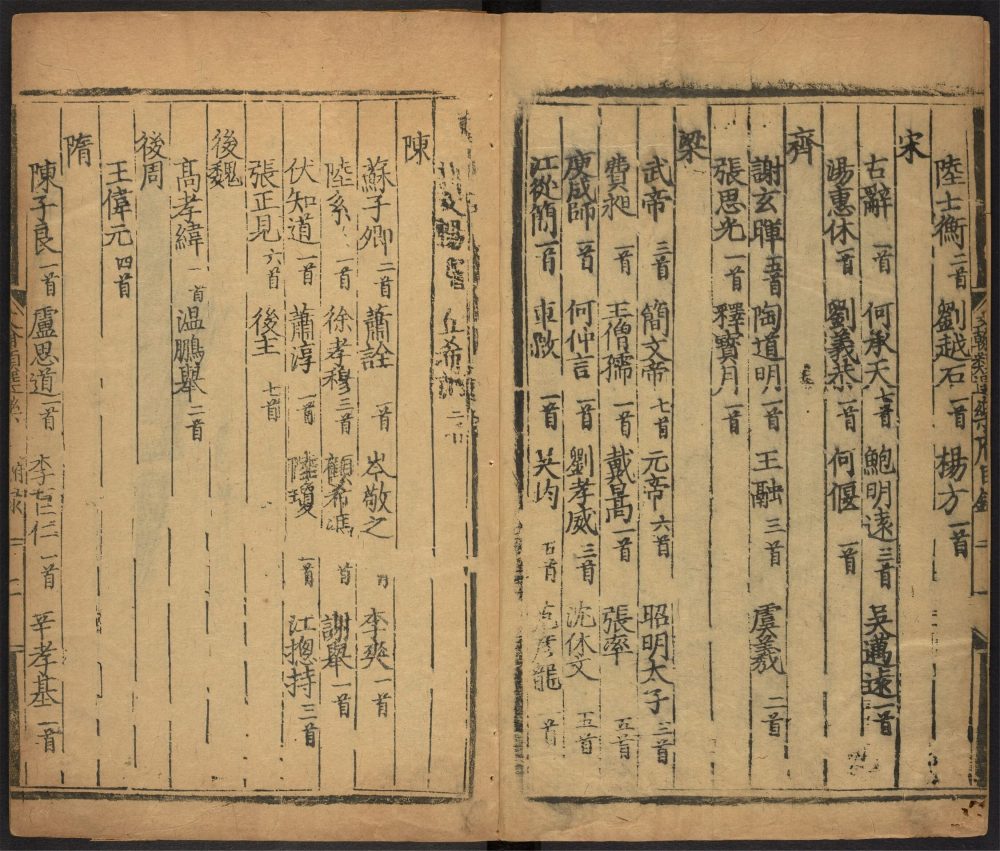 陸士衡 二首 劉越石 一首 楊方 一首
宋
古辭 一首 何承天 七首 鮑明遠 三首 吳邁遠 一首
湯惠休 一首 劉義恭 一首 何偃 一首
齊
謝玄暉 五首 陶道明 一首 王融 三首 虞羲 二首
張思光 一首 釋寶月 一首
梁
武帝 三首 簡文帝 七首 元帝 六首 昭明太子 三首
費昶 一首 王僧孺 一首 戴暠 一首 張率 五首
庾成師 一首 何仲言 一首 劉孝威 三首 沈休文 五首
江從簡 一首 車 一首 吳均 五首 龍 首
丘希
陳
蘇子卿 二首 蕭詮 一首 岑敬之 李爽 一首
陸系 一首 徐孝穆 三首 顧希馮 首 謝舉 一首
伏知道 一首 蕭淳 一首 陸瓊 一首 江揔持 三首
張正見 六首 後主 七首
後魏
高孝緯 一首 温鵬舉 二首
後周
王偉元 四首
隋
陳子良 一首 盧思道 一首 李 仁 一首 辛孝基 一首